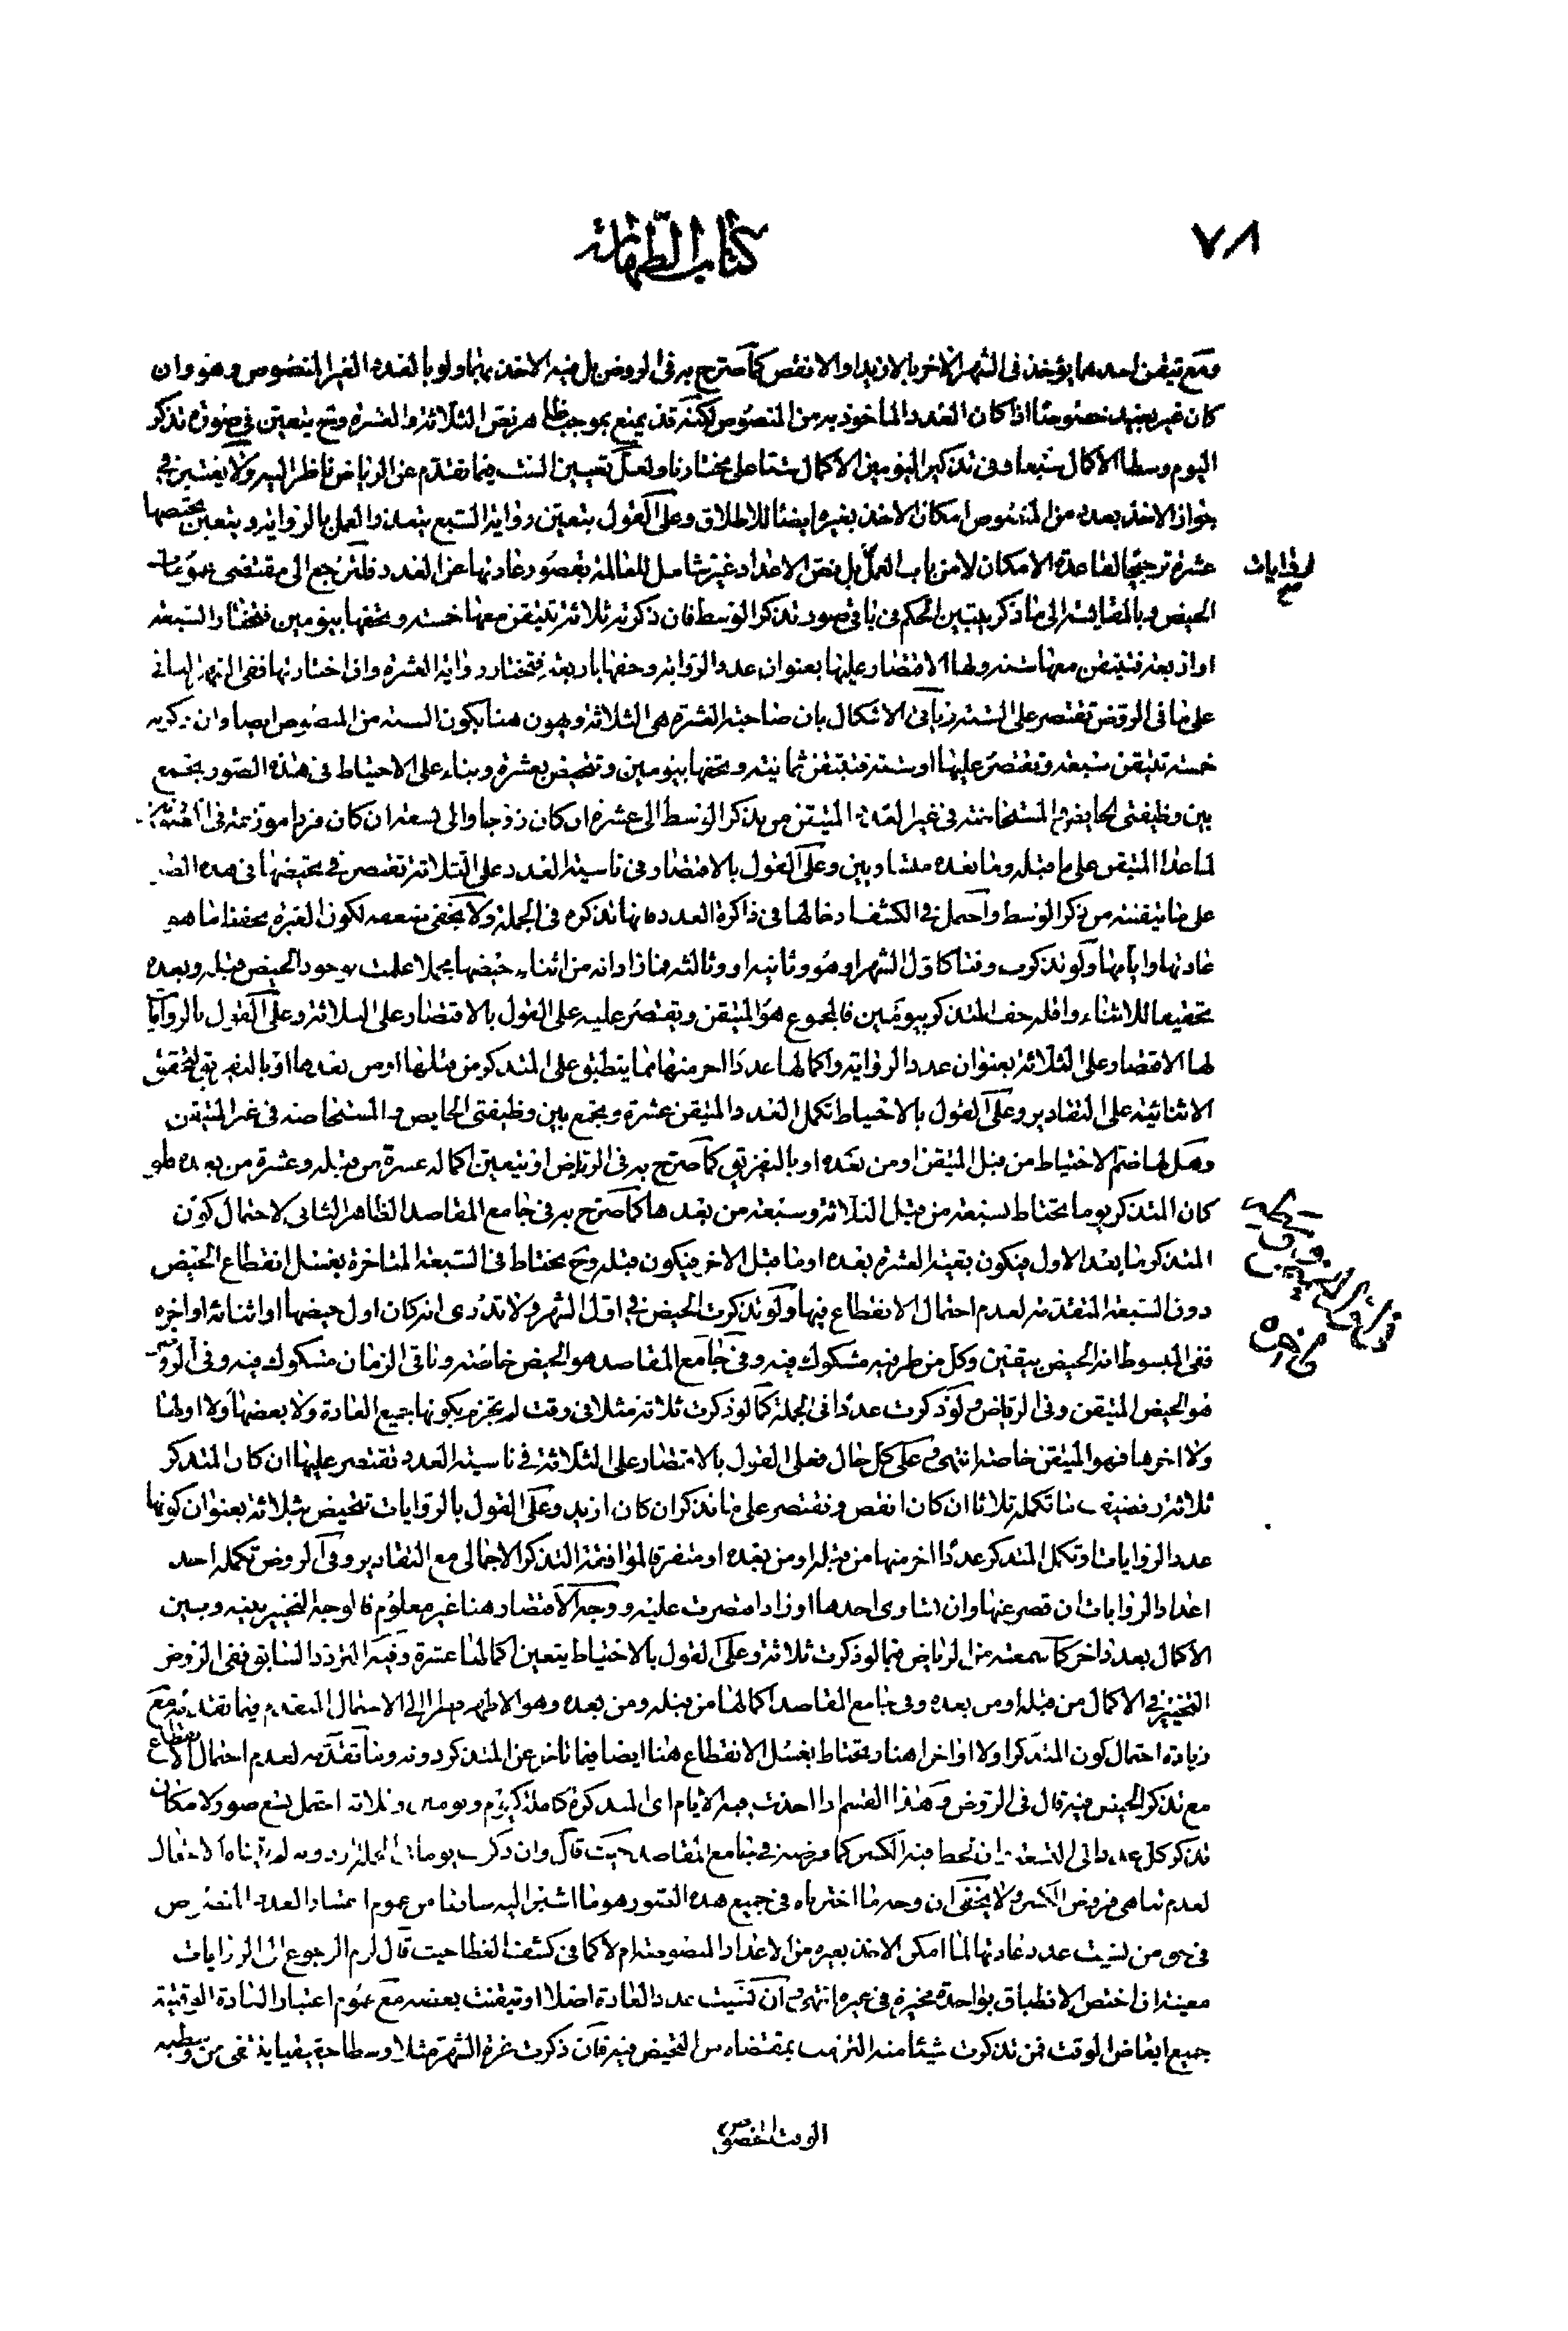 ٧٨
كتاب الطهارة
ومع تيقن احدهما يؤخذ فى الشهر الآخر بالازيد او الانقص كما صرح به فى الروض بل فيه الاخذ بهما ولو بالعدد الغير المنصوص وهو وان
كان غير بعيد خصوصا اذا كان العدد المأخوذ به من المنصوص لكنه قد يمنع بموجب ظاهر نص الثلاثة والعشرة ومع يتعين فى صورة تذكر
اليوم وسطا الاكمال سبعا وفى تذكير اليومين الاكمال ستا على مختارنا ولعل تعيين الست فيما تقدم عن الرياض ناظر اليه ولا يعتبر فى
جواز الاخذ بعدد من المنصوص امكان الاخذ بغيره ايضا للاطلاق وعلى القول بتعين رواية السبع يتعذر العمل بالرواية ويتعين تحيضها
عشرة ترجيحا لقاعدة الامكان لا من باب العمل بل نص الاعداد غير شامل للعالمة بقصور عادتها عن العدد فلترجع الى مقتضى عمومات
لروايات صح
الحيض وبالمقايسة الى ما ذكر يتبين الحكم فى باقى صور تذكر الوسط فان ذكرته ثلاثة تتيقن معها خمسة وتحفها بيومين فتختار السبعة
او اربعة فتتيقن معها ستة ولها الاقتصار عليها بعنوان عدد الرواية وحفها باربعة فتختار رواية العشرة وان اختارتها ففى
على ما فى الروض تقتصر على الستة ويأتى الاشكال بان صاحبة العشرة هى الثلاثة ويهون هنا بكون الستة من المنصوص ايضا وان ذكرته
خمسة تتيقن سبعة وتقتصر عليها او ستة فتتيقن ثمانية وتحفها بيومين وتحيض بعشرة وبناء على الاحتياط فى هذه الصور تجمع
بين وظيفتى الحايض والمستحاضة فى غير العدد المتيقن من تذكر الوسط الى عشرة ان كان زوجا والى تسعة ان كان فردا موزعة فى
لما عدا المتيقن على ما قبله وما بعده متساويين وعلى القول بالاقتصار فى ناسية العدد على الثلاثة تقتصر فى تحيضها فى هذه
على ما تيقنته من ذكر الوسط واحتمل فى الكشف ادخالها فى ذاكرة العدد لانها تذكره فى الجملة ولا يخفى ضعفه لكون العبرة بحفظ ما هو
عادتها وايامها ولو تذكرت وقتا كاول الشهر او هو وثانيه او وثالثه فزادا انه من اثناء حيضها مجملا علمت بوجود الحيض قبله وبعده
تحقيقا للاثناء واقله حف المتذكر بيومين فالمجموع هو المتيقن ويقتصر عليه على القول بالاقتصار على الثلاثة وعلى القول بالروايات
لها الاقتصار على الثلاثة بعنوان عدد الرواية واكمالها عددا اخر منها مما ينطبق على المتذكر من قبلها او من بعدها او بالتفريق لتحقق
الاثنائية على التقادير وعلى القول بالاحتياط تكمل العدد المتيقن عشرة وتجمع بين وظيفتى الحايض والمستحاضة فى غير المتيقن
وهل لها ضم الاحتياط من قبل المتيقن او من بعده او بالتفريق كما صرح به فى الرياض او يتعين اكماله عشرة من قبله وعشرة من بعده فلو
كان المتذكر يوما تحتاط بسبعة من قبل الثلاثة وسبعة من بعدها كما صرح به فى جامع المقاصد الظاهر الثانى لاحتمال كون
المتذكر ما بعد الاول فيكون بقية العشرة بعده او ما قبل الاخر فيكون قبله وح تحتاط فى السبعة المتاخرة بغسل انقطاع الحيض
دون السبعة المتقدمة لعدم احتمال الانقطاع فيها ولو تذكرت الحيض فى اول الشهر ولا تدرى انه كان اول حيضها او اثنائه او اخره
ففى المبسوط انه الحيض بيقين وكل من طرفيه مشكوك فيه وفى جامع المقاصد هو الحيض خاصة وباقى الزمان مشكوك فيه وفى الروض
هو الحيض المتيقن وفى الرياض ولو ذكرت عددا فى الجملة كما لو ذكرت ثلاثة مثلا فى وقت لم تجزم بكونها جميع العادة ولا بعضها ولا اولها
ولا اخرها فهو المتيقن خاصة انتهى وعلى كل حال فعلى القول بالاقتصار على الثلاثة فى ناسية العدد تقتصر عليها ان كان المتذكر
ثلاثة وتضيف ما تكمله ثلاثا ان كان انقص وتقتصر على ما تذكر ان كان ازيد وعلى القول بالروايات تتحيض بثلاثة بعنوان كونها
عدد الروايات او تكمل المتذكر عددا اخر منها من قبله او من بعده او متفرقا لموافقة التذكر الاجمالى مع التقادير وفى الروض تكمله احد
اعداد الروايات ان قصر عنها وان ساوى احدها او زاد اقتصرت عليه ووجه الاقتصار هنا غير معلوم فالوجه التخيير بينه وبين
الاكمال بعدد اخر كما سمعته من الرياض فيما لو ذكرت ثلاثة وعلى القول بالاحتياط يتعين اكمالها عشرة وفيه التردد السابق ففى الروض
التخيير فى الاكمال من قبله او من بعده وفى جامع المقاصد اكمالها من قبله ومن بعده وهو الاظهر نظرا الى الاحتمال المتقدم فيما تقدمه مع
زيادة احتمال كون المتذكر اولا او اخرا هنا وتحتاط بغسل الانقطاع هنا ايضا فيما تاخر عن المتذكر دونه وما تقدمه لعدم احتمال الانقطاع
مع تذكر الحيض فيه قال فى الروض وهذا القسم اذا اخذت فيه الايام اى المتذكرة كاملة كيوم ويومين وثلاثة احتمل تسع صور لامكان
تذكر كل عدد الى التسعة وان لحظ فيه الكسر كما فرضه فى جامع المقاصد حيث قال وان ذكرت يوما
لعدم تناهى فروض الكسر ولا يخفى ان وجه ما اخترناه فى جميع هذه الصور هو ما اشير اليه سابقا من عموم اعتبار العدد المنصوص
فى حق من نسيت عدد عادتها لما امكن الاخذ بغيره من الاعداد المنصوصة ام لا كما فى كشف الغطا حيث قال لزم الرجوع الى الروايات
معينة ان اختص الانطباق بواحدة مخيرة فى غيره انتهى وان نسيت عدد العادة اصلا او تيقنت بعضه مع عموم اعتبار العادة الوقتية
جميع ابعاض الوقت فمن تذكرت شيئا منه التزمت بمقتضاه من التحيض فيه فان ذكرت غرة الشهر مثلا وسطا حقيقيا
الوقت المخصوص